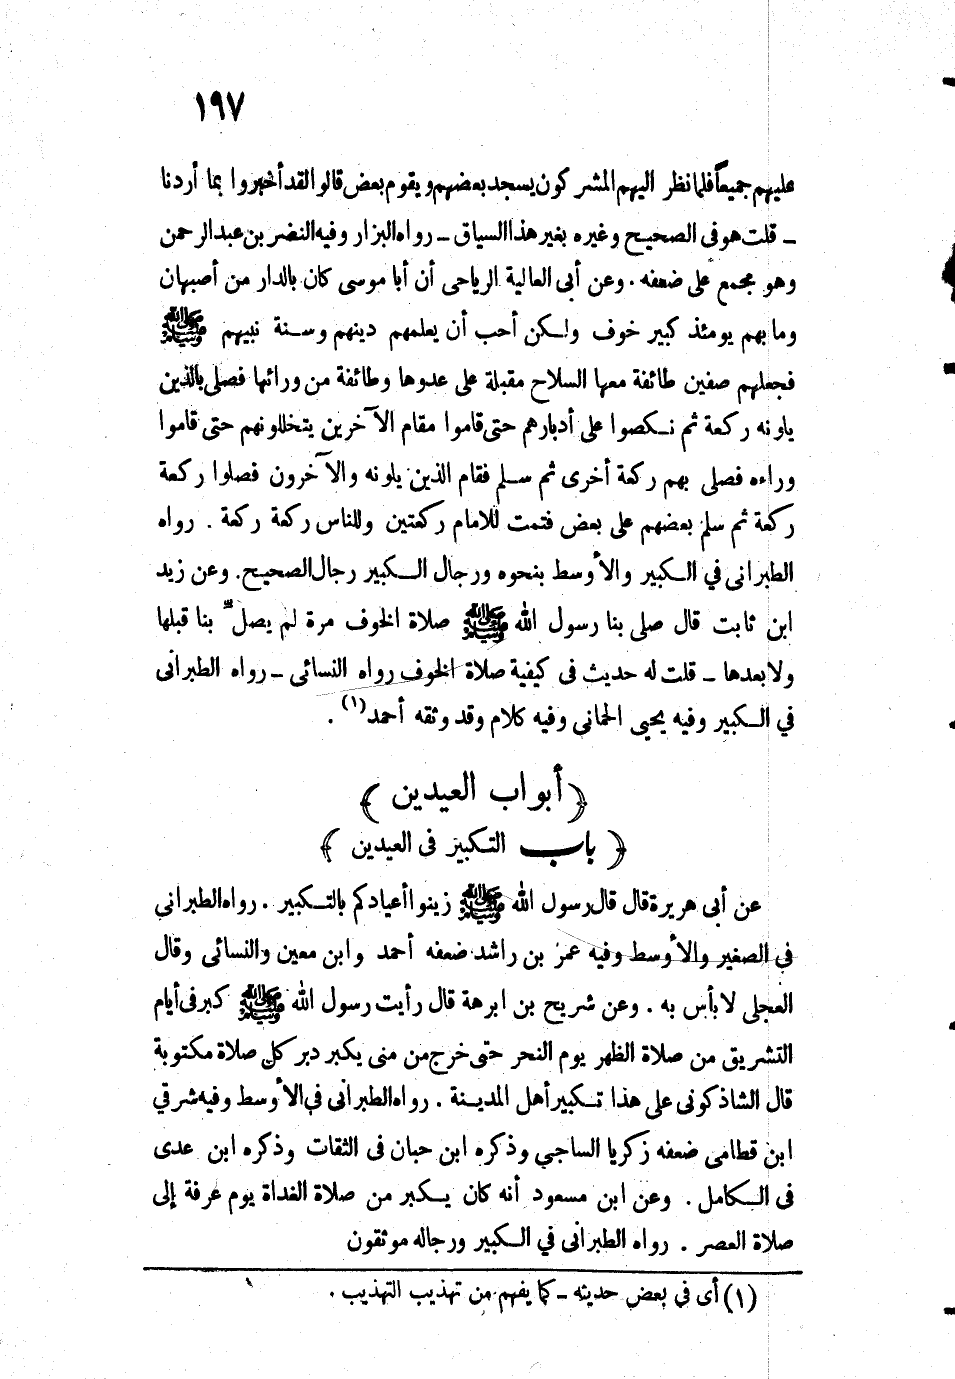 ١٩٧
عليهم جميعاً فلما نظر اليهم المشركون يسجد بعضهم ويقوم بعض قالوا لقد أخبروا بما أردنا
ـ قلت هو فى الصحيح وغيره بغير هذا السياق ـ رواه البزار وفيه النضر بن عبد الرحمن
وهو مجمع على ضعفه . وعن أبى العالية الرياحى أن أبا موسى كان بالدار من أصبهان
وما بهم يومئذ كبير خوف ولكن أحب أن يعلمهم دينهم وسنة نبيهم ﷺ
فجعلهم صفين طائفة معها السلاح مقبلة على عدوها وطائفة من ورائها فصلى بالذين
يلونه ركعة ثم نكصوا على أدبارهم حتى قاموا مقام الآخرين يتخللونهم حتى قاموا
وراءه فصلى بهم ركعة أخرى ثم سلم فقام الذين يلونه والآخرون فصلوا ركعة
ركعة ثم سلم بعضهم على بعض فتمت للامام ركعتين وللناس ركعة ركعة . رواه
الطبرانى في الكبير والأوسط بنحوه ورجال الكبير رجال الصحيح. وعن زيد
ابن ثابت قال صلى بنا رسول الله ﷺ صلاة الخوف مرة لم يصل بنا قبلها
ولا بعدها ـ قلت له حديث فى كيفية صلاة الخوف رواه النسائى ـ رواه الطبرانى
في الكبير وفيه يحيى الحمانى وفيه كلام وقد وثقه أحمد (١) .
﴿ أبواب العيدين ﴾
﴿ باب التكبير فى العيدين ﴾
عن أبى هريرة قال قال رسول الله ﷺ زينوا أعيادكم بالتكبير . رواه الطبرانى
فى الصغير والأوسط وفيه عمر بن راشد ضعفه أحمد وابن معين والنسائى وقال
العجلى لا بأس به . وعن شريح بن ابرهة قال رأيت رسول الله ﷺ كبر فى أيام
التشريق من صلاة الظهر يوم النحر حتى خرج من منى يكبر دبر كل صلاة مكتوبة
قال الشاذكونى على هذا تكبير أهل المدينة . رواه الطبرانى في الأوسط وفيه شرقي
ابن قطامى ضعفه زكريا الساجي وذكره ابن حبان فى الثقات وذكره ابن عدى
فى الكامل . وعن ابن مسعود أنه كان يكبر من صلاة الغداة يوم عرفة إلى
صلاة العصر . رواه الطبرانى في الكبير ورجاله موثقون
(١) أى في بعض حديثه ـ كما يفهم من تهذيب التهذيب .